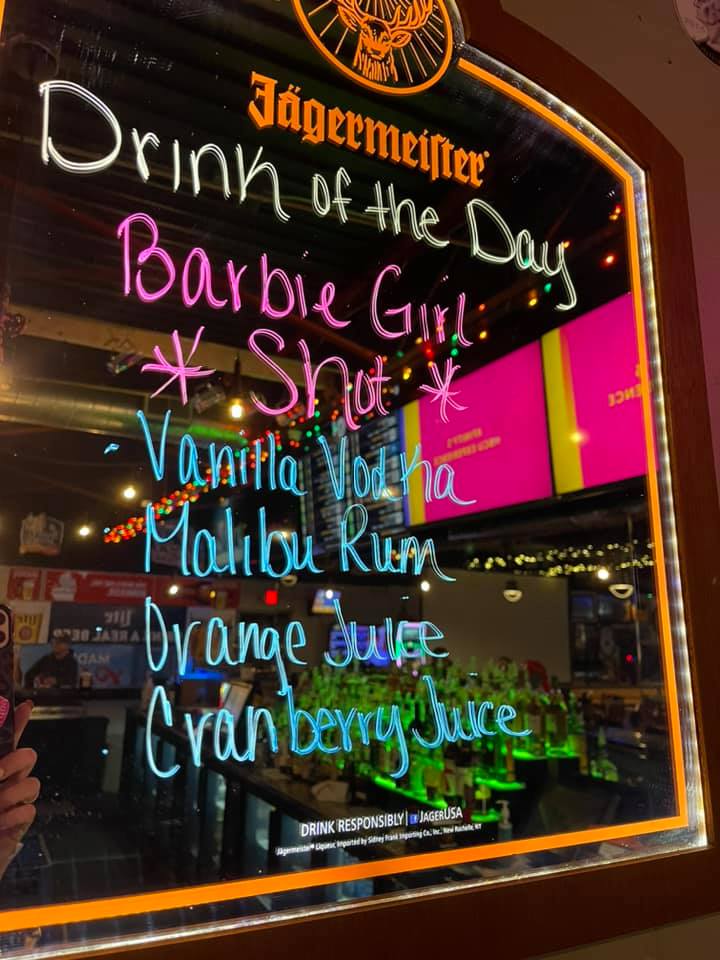 Jägermeister
Drink of the Day
Barbie Girl
* Shot *
Vanilla Vodka
Malibu Rum
Orange Juice
Cranberry Juice
DRINK RESPONSIBLY | f JAGERUSA
Jägermeister® Liqueur, Imported by Sidney Frank Importing Co., Inc., New Rochelle, NY
Lite